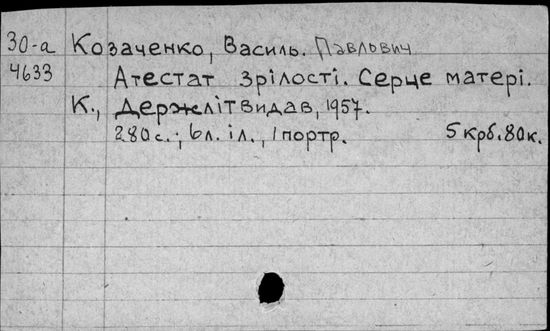 30-а Козаченко, Василь. Павлович
4633 Атестат зрілості. Серце матері.
К., Держлітвидав, 1957.
280с.; 6л. іл., 1портр. 5крб.80к.